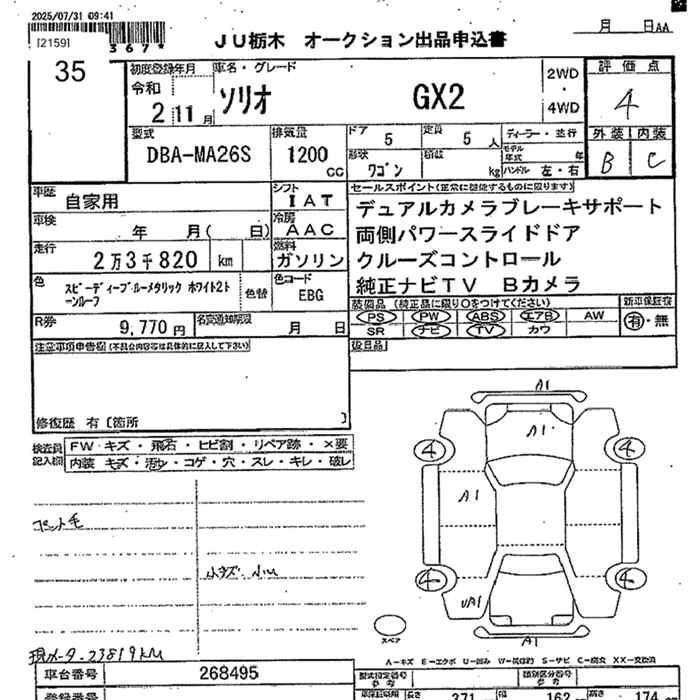 2025/07/31 09:41
[2159]
367*
JU栃木 オークション出品申込書
月 日AA
35
初度登録年月
令和
2 11月
車名・グレード
ソリオ GX2
2WD
・
4WD
評価点
4
外装 内装
B C
型式
DBA-MA26S
排気量
1200
CC
ドア 5
定員 5 人
形状 ワゴン
積載 kg
ディーラー・並行
モデル
年式 年
ハンドル 左・右
車歴 自家用
シフト IAT
車検 年 月( 日)
冷房 AAC
走行 2万3千820 km
燃料 ガソリン
色 スピーディーブルーメタリック ホワイト2ト
ーンルーフ
色替
色コード
EBG
R券 9,770円
名変通知期限 月 日
セールスポイント(正常に機能するものに限ります)
デュアルカメラブレーキサポート
両側パワースライドドア
クルーズコントロール
純正ナビTV Bカメラ
装備品 (純正品に限り○をつけてください)
PS PW ABS エアB AW
SR ナビ TV カワ
新車保証書
有・無
後日品
注意事項申告欄(不具合内容等は具体的に記入して下さい)
修復歴 有〔箇所 〕
検査員
記入欄
FW キズ・飛石・ヒビ割・リペア跡・×要
内装 キズ・汚れ・コゲ・穴・スレ・キレ・破レ
ペット毛
小キズ 小凹
現メータ-23819KM
A1
A1
4 4
A1
4 4
UA1
A1
スペア
A-キズ E-エクボ U-凹み W-補修跡 S-サビ C-腐食 XX-交換済
車台番号 268495
登録番号
型式指定番号
参考
類別区分番号
参考
長さ 371 幅 162 高さ 174